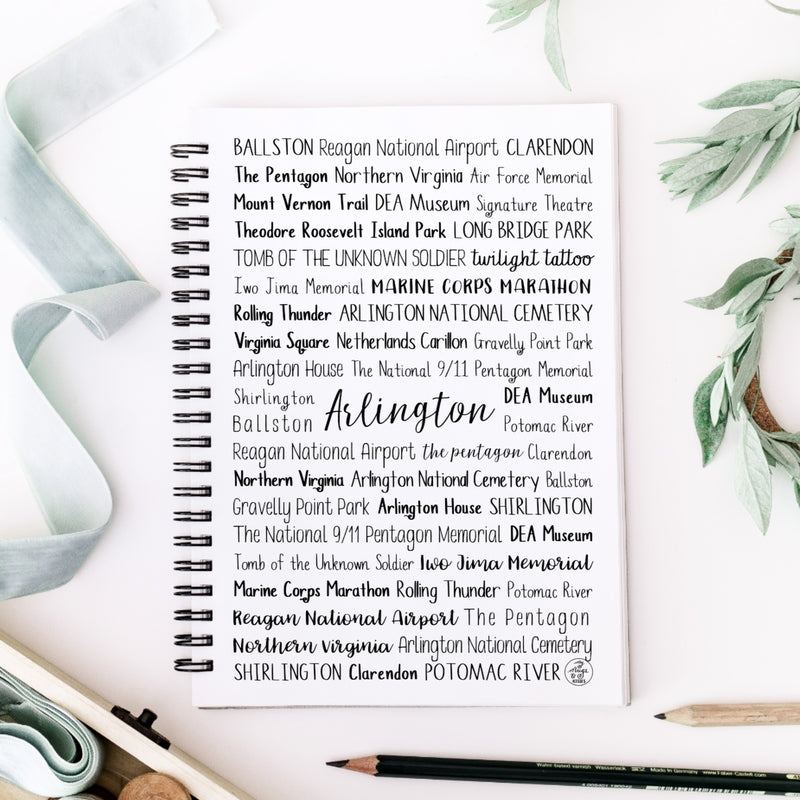 BALLSTON Reagan National Airport CLARENDON
The Pentagon Northern Virginia Air Force Memorial
Mount Vernon Trail DEA Museum Signature Theatre
Theodore Roosevelt Island Park LONG BRIDGE PARK
TOMB OF THE UNKNOWN SOLDIER twilight tattoo
Iwo Jima Memorial MARINE CORPS MARATHON
Rolling Thunder ARLINGTON NATIONAL CEMETERY
Virginia Square Netherlands Carillon Gravelly Point Park
Arlington House The National 9/11 Pentagon Memorial
Shirlington DEA Museum
Arlington
Ballston Potomac River
Reagan National Airport the pentagon Clarendon
Northern Virginia Arlington National Cemetery Ballston
Gravelly Point Park Arlington House SHIRLINGTON
The National 9/11 Pentagon Memorial DEA Museum
Tomb of the Unknown Soldier Iwo Jima Memorial
Marine Corps Marathon Rolling Thunder Potomac River
Reagan National Airport The Pentagon
Northern Virginia Arlington National Cemetery
SHIRLINGTON Clarendon POTOMAC RIVER
Made in Germany www.Faber-Castell.com